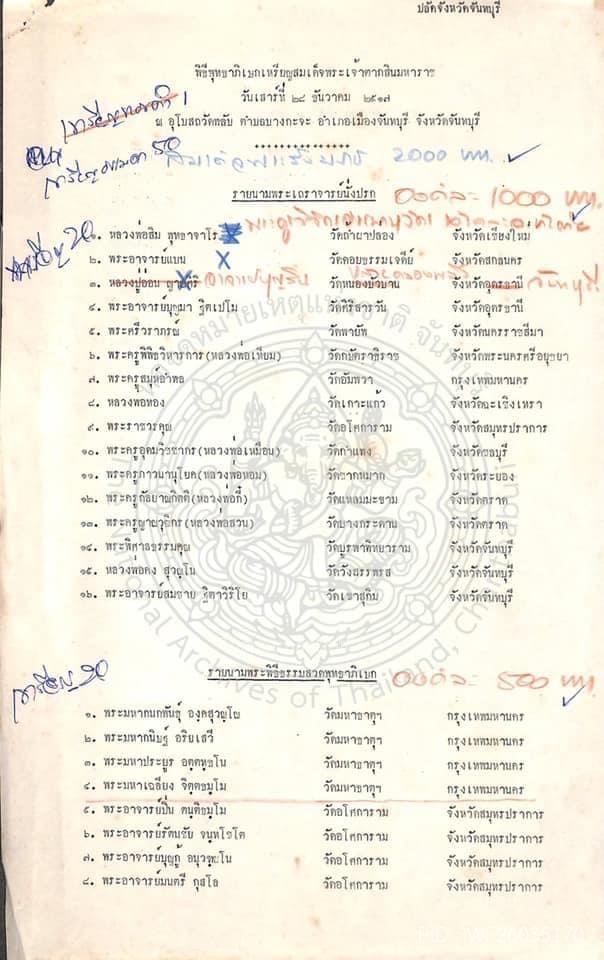 ปลัดจังหวัดจันทบุรี
พิธีพุทธาภิเษกเหรียญสมเด็จพระเจ้าตากสินมหาราช
วันเสาร์ที่ ๒๘ ธันวาคม ๒๕๑๗
ณ อุโบสถวัดพลับ ตำบลบางกะจะ อำเภอเมืองจันทบุรี จังหวัดจันทบุรี
2000 บาท.
รายนามพระเถราจารย์นั่งปรก องค์ละ 1000 บาท.
๑. หลวงพ่อสิม พุทธาจาโร วัดถ้ำผาปล่อง จังหวัดเชียงใหม่
๒. พระอาจารย์แบน X วัดดอยธรรมเจดีย์ จังหวัดสกลนคร
๓. หลวงปู่อ่อน ญาณสิริ วัดหนองบัวบาน จังหวัดอุดรธานี จันทบุรี
๔. พระอาจารย์บุญมา ฐิตเปโม วัดศิริสารวัน จังหวัดอุดรธานี
๕. พระครีวราภรณ์ วัดพายัพ จังหวัดนครราชสีมา
๖. พระครูพิพิธวิหารการ(หลวงพ่อเทียม) วัดกษัตราธิราช จังหวัดพระนครศรีอยุธยา
๗. พระครูสมุห์อำพล วัดอัมพวา กรุงเทพมหานคร
๘. หลวงพ่อทอง วัดเกาะแก้ว จังหวัดฉะเชิงเทรา
๙. พระราชวรคุณ วัดอโศการาม จังหวัดสมุทรปราการ
๑๐. พระครูอุดมวิชชากร(หลวงพ่อเหมือน) วัดกำแพง จังหวัดชลบุรี
๑๑. พระครูภาวนานุโยค(หลวงพ่อหอม) วัดชากหมาก จังหวัดระยอง
๑๒. พระครูกัลยาณกิตติ(หลวงพ่อกี๋) วัดแหลมมะขาม จังหวัดตราด
๑๓. พระครูญาณวุฒิกร(หลวงพ่อสวน) วัดบางกระดาน จังหวัดตราด
๑๔. พระพิศาลธรรมคุณ วัดบูรพาพิทยาราม จังหวัดจันทบุรี
๑๕. หลวงพ่อคง สุวณฺโน วัดวังสรรพรส จังหวัดจันทบุรี
๑๖. พระอาจารย์สมชาย ฐิตวิริโย วัดเขาสุกิม จังหวัดจันทบุรี
เหรียญ 20
รายนามพระพิธีธรรมสวดพุทธาภิเษก องค์ละ 500 บาท.
๑. พระมหากนกพันธุ์ องฺคสุวณฺโณ วัดมหาธาตุฯ กรุงเทพมหานคร
๒. พระมหากนิษฐ์ อริยเสวี วัดมหาธาตุฯ กรุงเทพมหานคร
๓. พระมหาประยูร วัดมหาธาตุฯ กรุงเทพมหานคร
๔. พระมหาเฉลียง จิตฺตธมฺโม วัดมหาธาตุฯ กรุงเทพมหานคร
๕. พระอาจารย์ปิ่น ขนฺติธมฺโม วัดอโศการาม จังหวัดสมุทรปราการ
๖. พระอาจารย์รัตนชัย จนฺทโชโต วัดอโศการาม จังหวัดสมุทรปราการ
๗. พระอาจารย์บุญกู้ อนุวฑฺฒโน วัดอโศการาม จังหวัดสมุทรปราการ
๘. พระอาจารย์มนตรี กุสโล วัดอโศการาม จังหวัดสมุทรปราการ